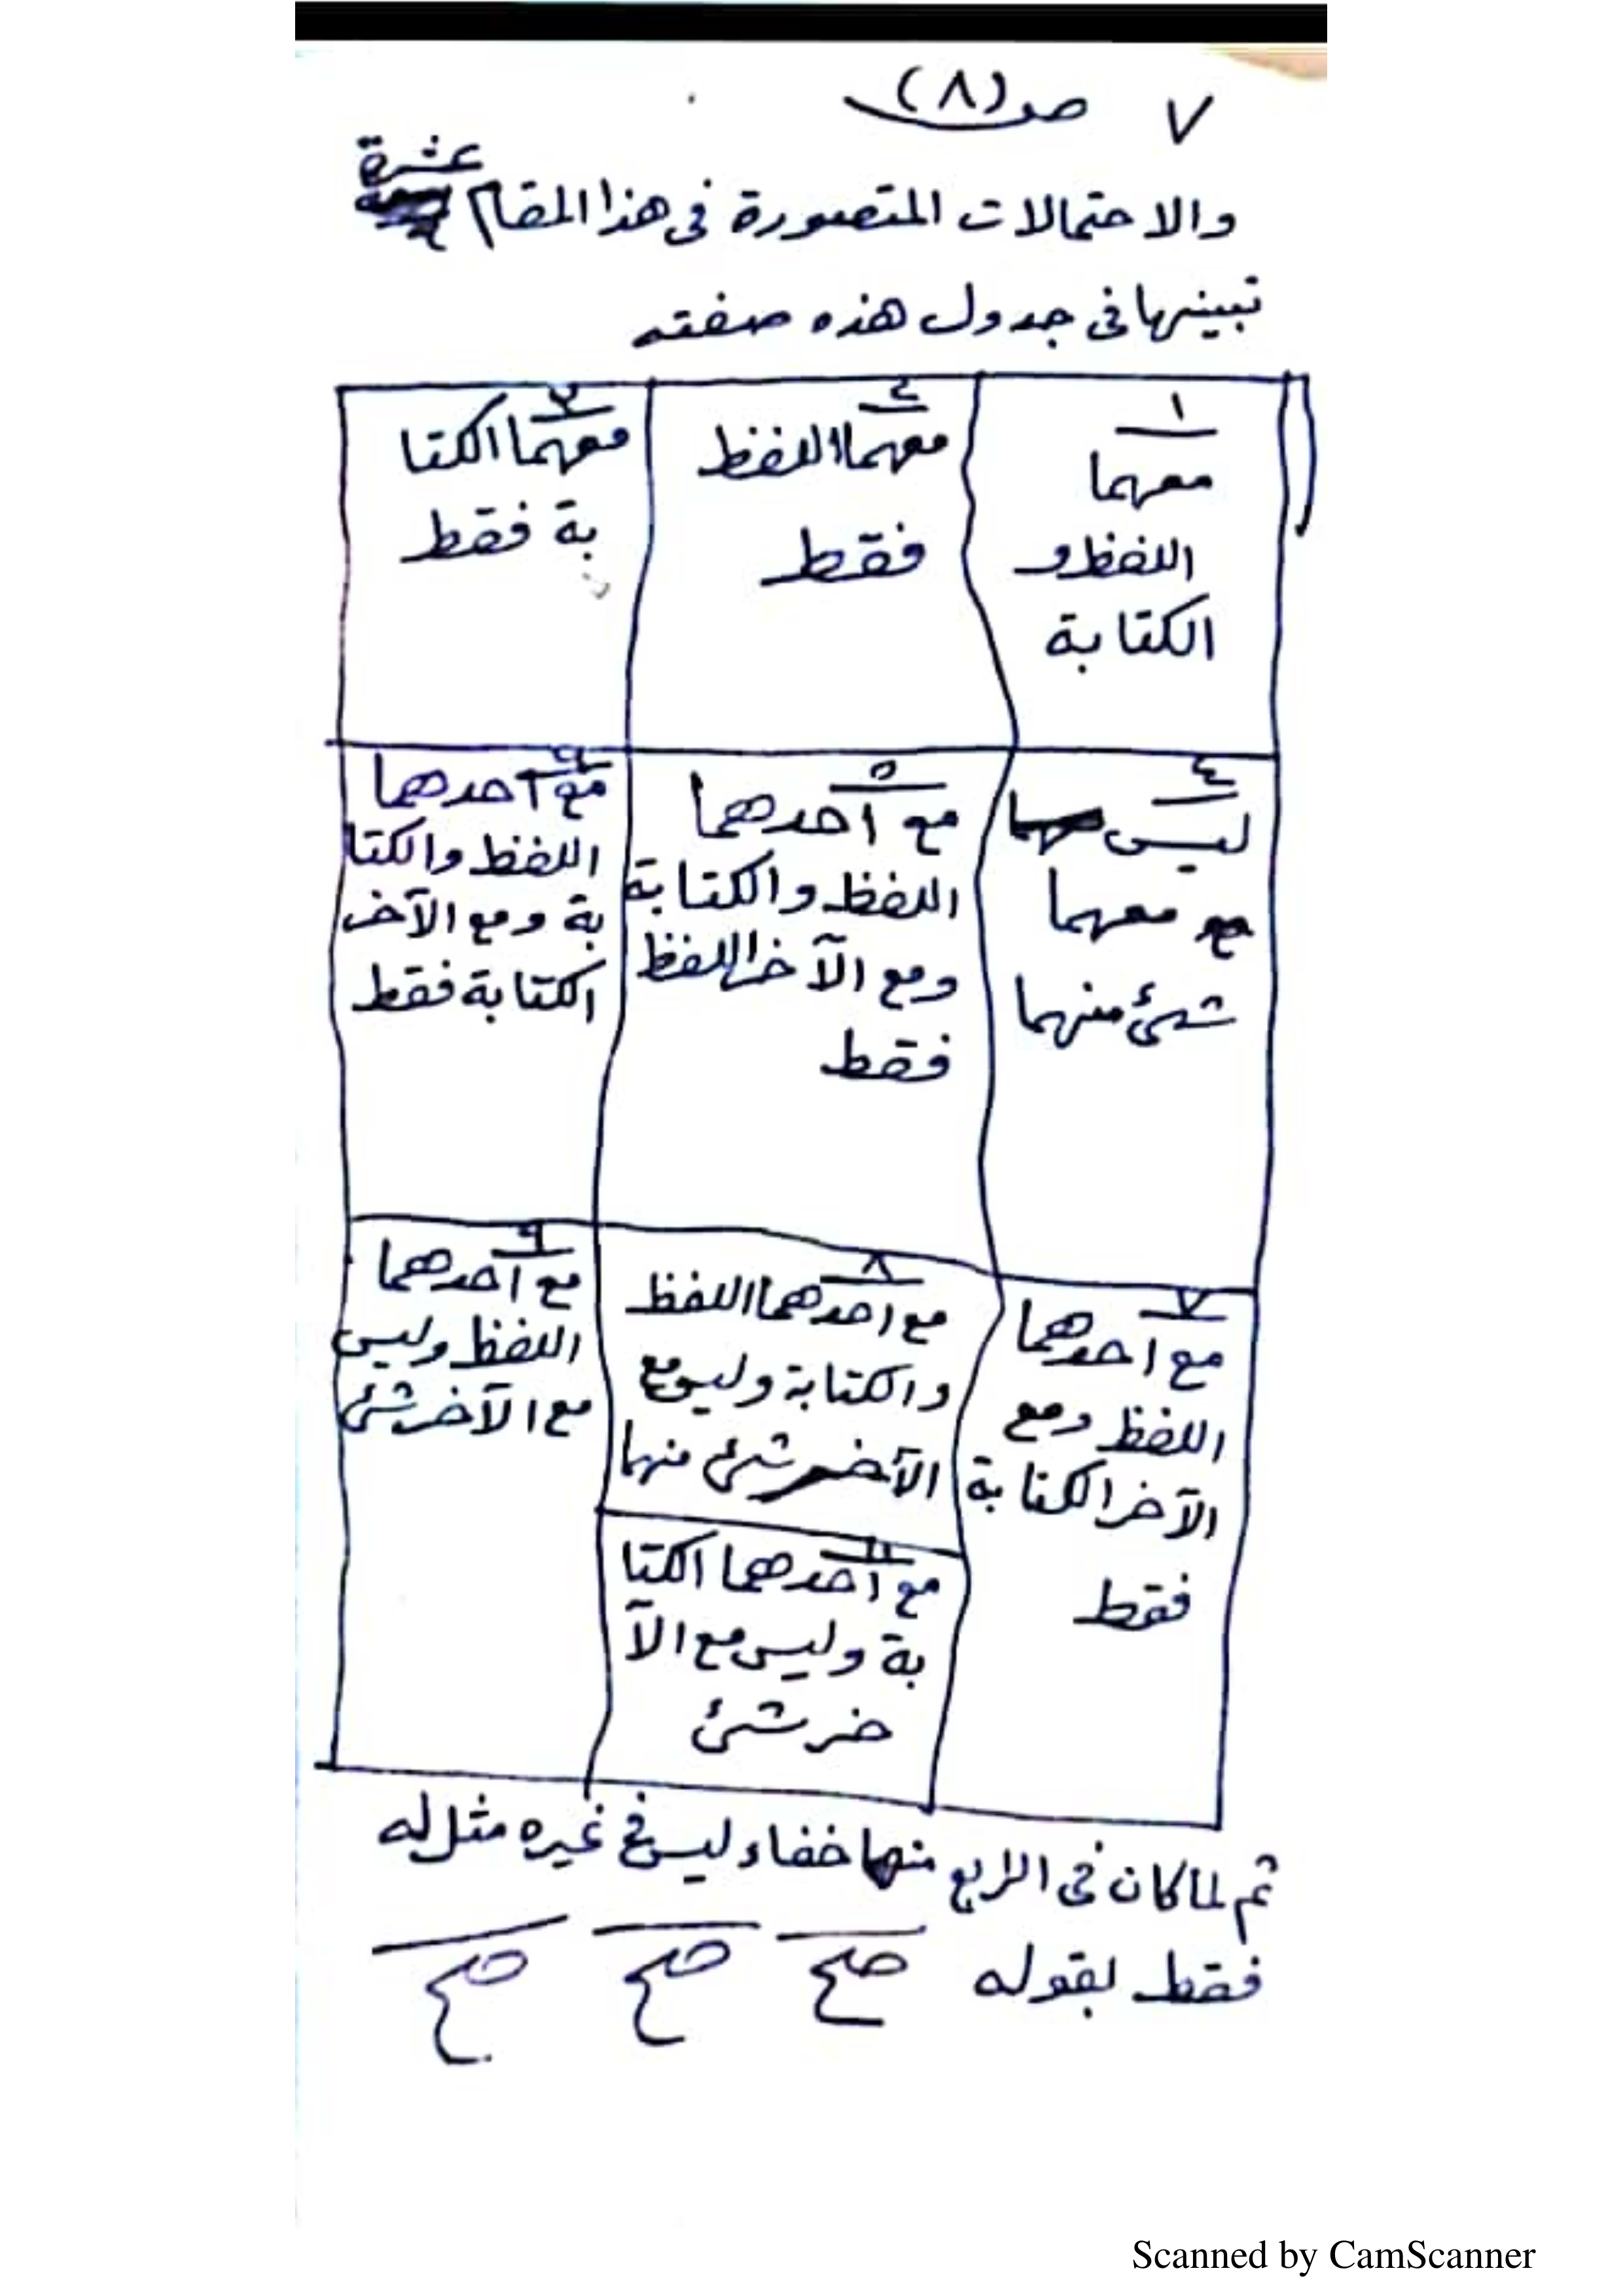 ٧ صـ (٨)
والاحتمالات المتصورة فى هذا المقام عشرة
تبينها فى جدول هذه صفته
١
معهما
اللفظ و
الكتابة
٢
معهما اللفظ
فقط
٣
معهما الكتا
بة فقط
٤
ليس
معهما
شئ منهما
٥
مع احدهما
اللفظ والكتابة
ومع الآخر اللفظ
فقط
٦
مع احدهما
اللفظ والكتا
بة ومع الآخر
الكتابة فقط
٧
مع احدهما
اللفظ ومع
الآخر الكتابة
فقط
٨
مع احدهما اللفظ
والكتابة وليس مع
الآخر شئ منها
٩
مع احدهما
اللفظ وليس
مع الآخر شئ
مع احدهما الكتا
بة وليس مع الآ
خر شئ
ثم لما كان فى الرابع منها خفاء ليس فى غيره مثل له
فقط بقوله صح صح صح
Scanned by CamScanner